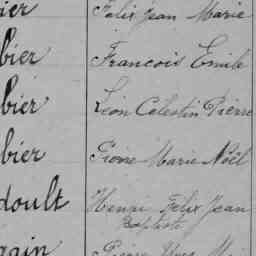 ier Felix Jean Marie
bier Francois Emile
bier Léon Celestin Pierre
bier Pierre Marie Noël
doult Henri Felix Jean
Baptiste
Pierre Yves